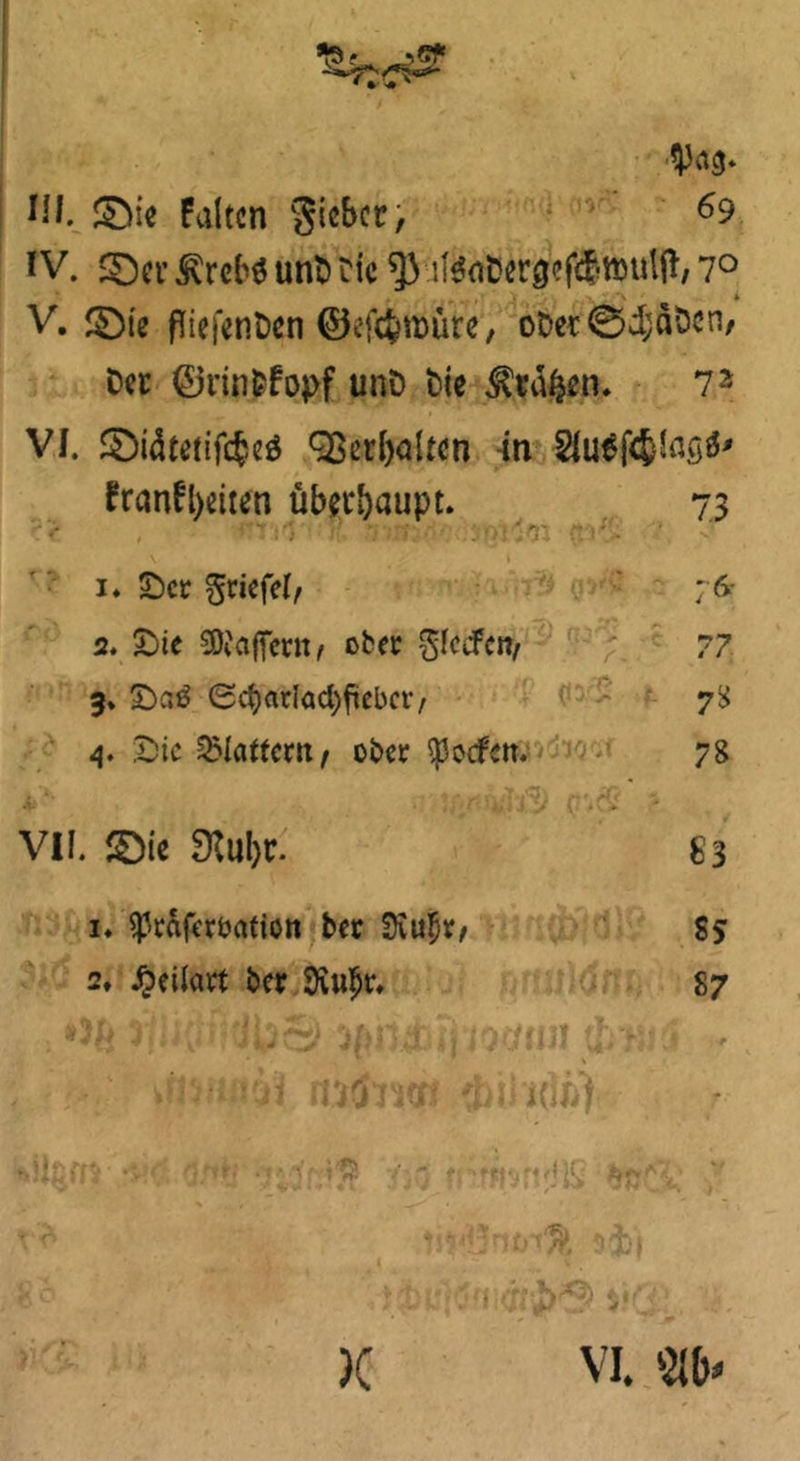 Pag.
III. Die kalten Fieber, 69
IV. Der Krebs und die Pulsadergeschwulst, 70
V. Die fliesenden Geschwüre, oder Schäden,
der Grindkopf und die Krätzen. 72
VI. Diätetisches Verhalten in Ausschlags-
krankheiten überhaupt. 73
1. Der Friesel, 76
2. Die Massern, oder Flecken, 77
3. Das Scharlachfieber, 78
4. Die Blattern, oder Pocken. 78
VII. Die Ruhr. 83
1. Präservation der Ruhr, 85
2. Heilart der Ruhr. 87
)( VI. Ab-